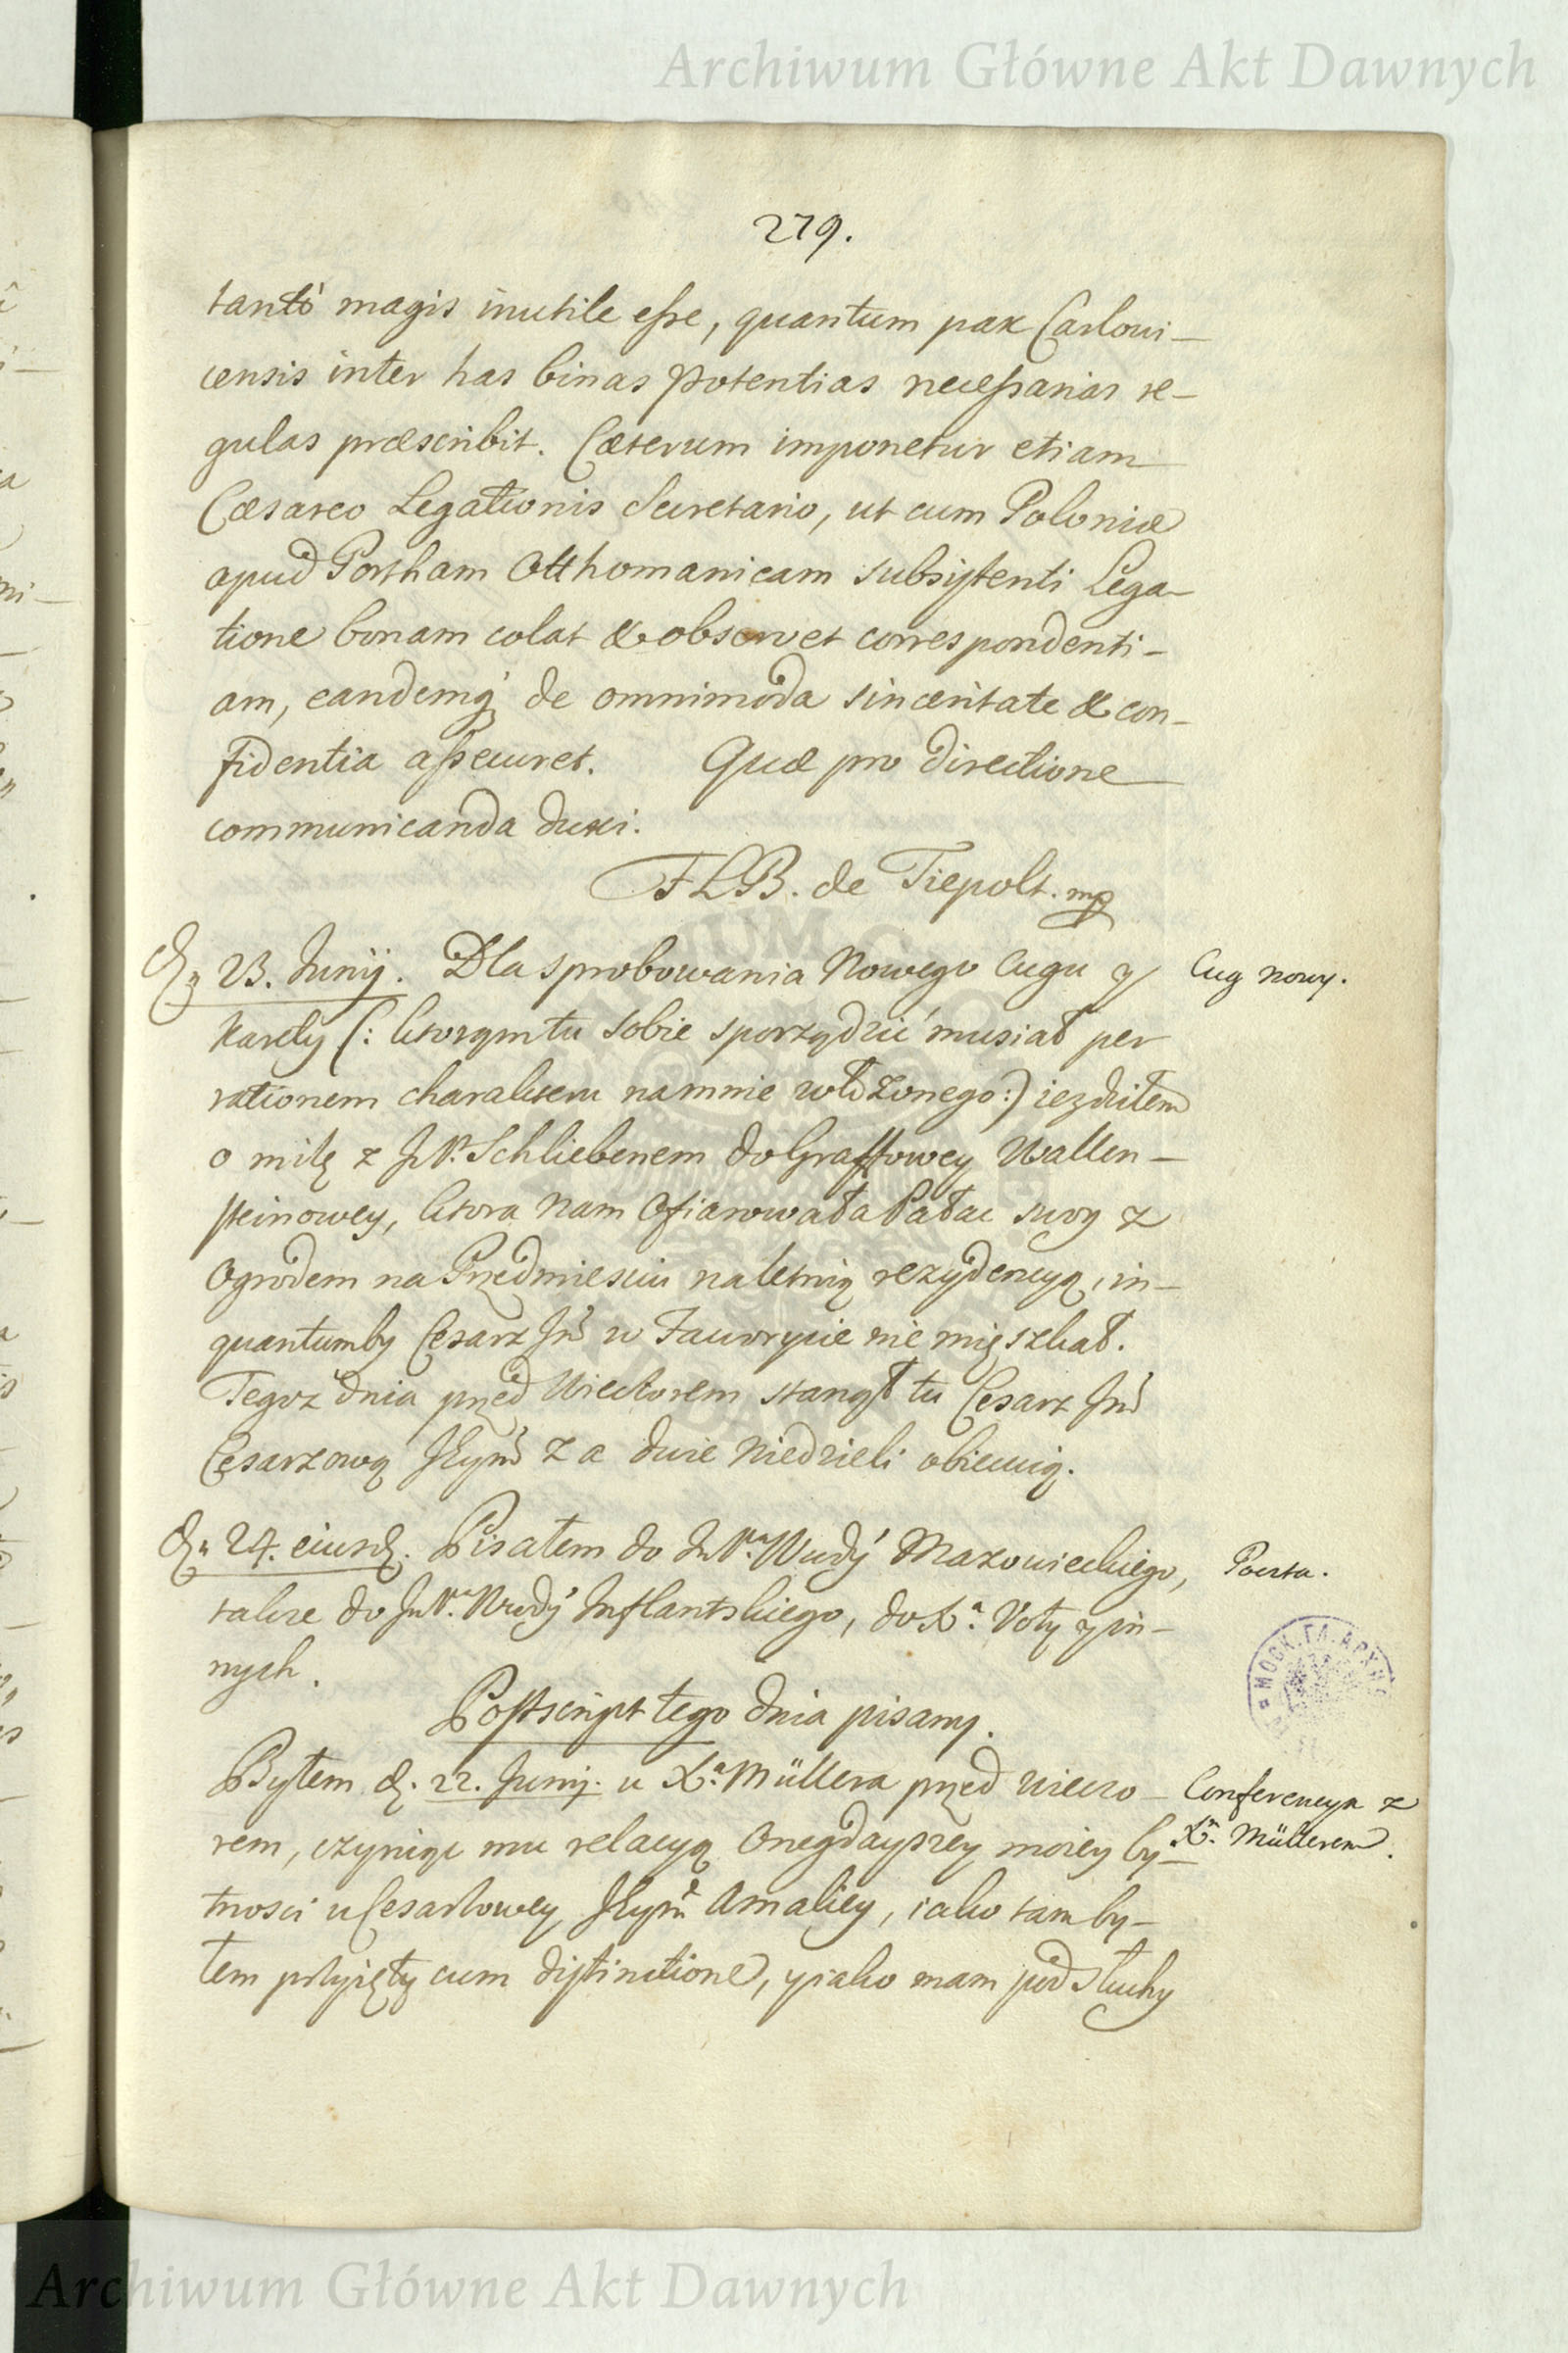 Archiwum Główne Akt Dawnych
279.
tantò magis inutile esse, quantum pax Carlovi-
censis inter has binas Potentias necessarias re-
gulas præscribit. Cæterum imponetur etiam
Cæsareo Legationis Secretario, ut cum Poloniæ
apud Portham Otthomanicam subsistenti Lega-
tione bonam colat & observet correspondenti-
am, eandemq; de omnimoda sinceritate & con-
fidentia assecuret. Quæ pro directione
communicanda duxi.
F L B. de Tiepolt. mp
D. 23. Junij. Dla sprobowania Nowego Cugu y
Cug nowy.
Karety (: ktorym tu sobie sporządzić musiał per
rationem charakteru na mnie włożonego:) iezdziłem
o milę z JP. Schliebenem do Graffowey Wallen-
steinowey, ktora nam ofiarowała Pałac swoy z
Ogrodem na Przedmiesciu na letnią rezydencyą, in-
quantumby Cesarz Jmć w Faworycie nie mięszkał.
Tegoż dnia przed Wieczorem stanął tu Cesarz Jmć
Cesarzową Jeymć za dwie Niedzieli obiecuią.
D. 24. eiusd. Pisałem do JP. Wdy Mazowieckiego,
Poczta.
takze do JP. Wdy Inflantskiego, do Xa. Voty y in-
nych.
Postscript tego dnia pisany.
Byłem d. 22. Junij. u Xa. Müllera przed wieczo-
Conferencya z
Xm. Müllerem.
rem, czyniąc mu relacyą Onegdayszey moiey by-
tnosci u Cesarzowey Jeymci Amaliey, iako tam by-
łem przyięty cum distinctione, y iako mam pod słuchy
МОСК. ГЛ. АРХИВ
Archiwum Główne Akt Dawnych